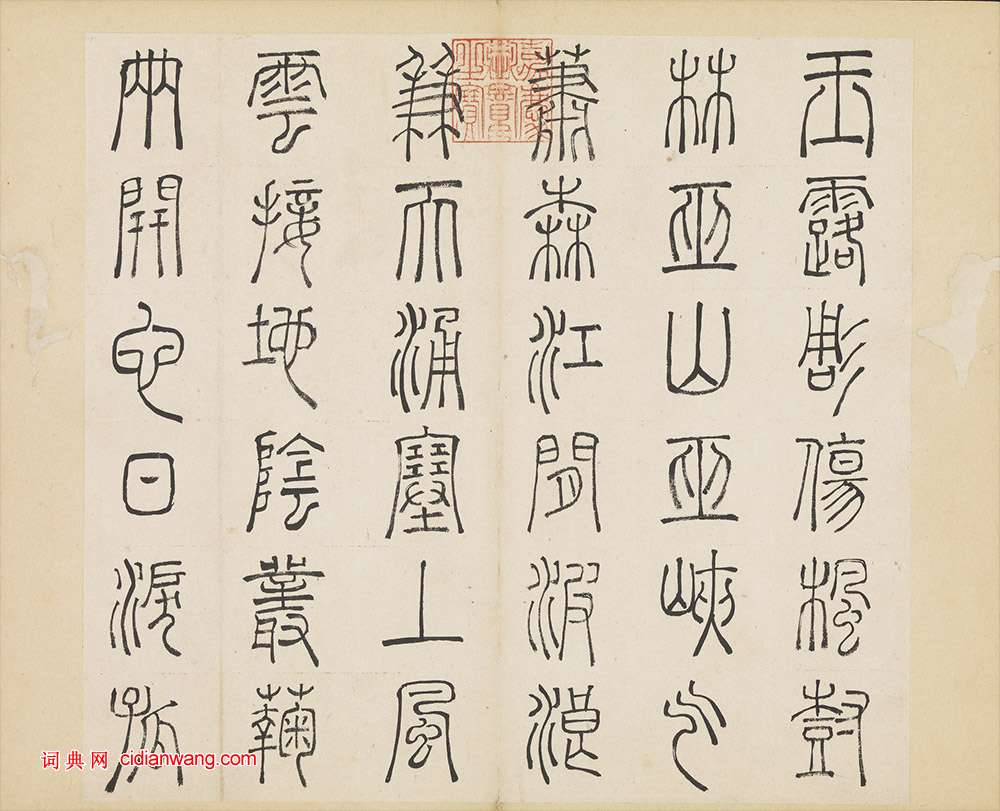 玉露彫傷楓樹
林巫山巫峽气
蕭森江間波浪
兼天涌塞上風
雲接地陰叢菊
兩開它日淚孤
嘉慶御覽之寶
词典网 cidianwang.com